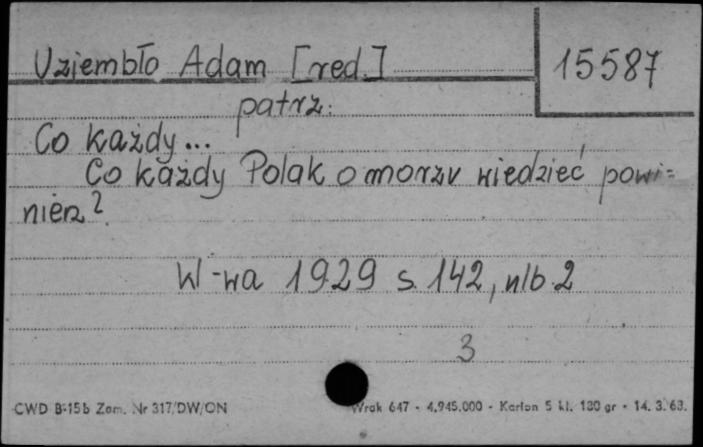 Uziembło Adam [red.]
15587
patrz:
Co każdy...
Co każdy Polak o morzu wiedzieć powi=
nien?
W-wa 1929 s. 142, nlb. 2
3
CWD B-15b Zam. Nr 317/DW/ON
Wrak 647 - 4.945.000 - Karton 5 kl. 180 gr - 14. 3. 63.